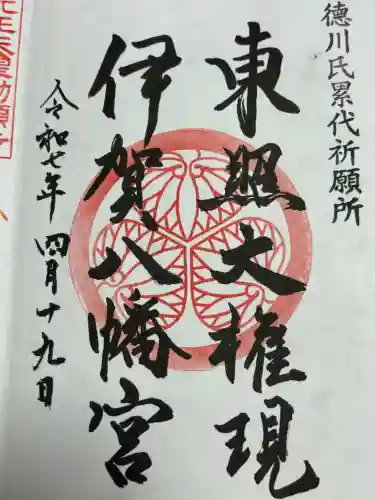 徳川氏累代祈願所
東照大権現
伊賀八幡宮
令和七年 四月十九日